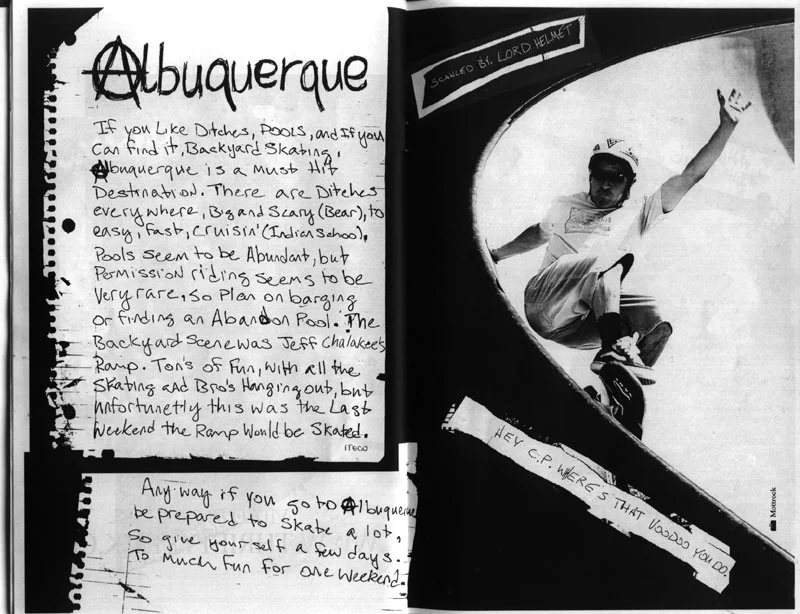 Albuquerque
If you Like Ditches, POOLS, and If you
Can find it, Backyard Skating,
Albuquerque is a Must Hit
Destination. There are Ditches
everywhere, Big and Scary (Bear), to
easy, fast, cruisin' (Indian School),
Pools seem to be Abundant, but
Permission riding seems to be
Very rare, so Plan on barging
or finding an Abandon Pool. The
Backyard Scene was Jeff Chalakee's
Ramp. Ton's of Fun, with all the
Skating and Bro's Hanging out, but
Unfortunetly this was the Last
Weekend the Ramp Would be Skated.
Any way if you go to Albuquerque
be prepared to Skate a lot,
So give yourself a few days.
To Much Fun for one Weekend.
SCANCED BY: LORD HELMET
HEY C.P. WHERE'S THAT VOODOO YOU DO.
Mottrock